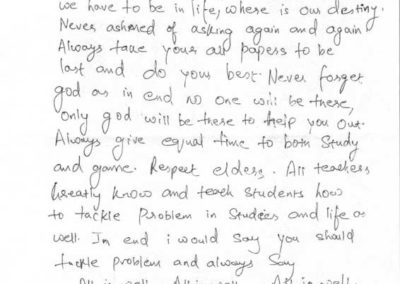 we have to be in life, where is our destiny.
Never ashmed of asking again and again
Always take your all papers to be
last and do your best. Never forget
god as in end no one will be there,
only god will be there to help you out.
Always give equal time to both Study
and game. Respect elders. All teachers
Greatly know and teach students how
to tackle Problem in Studies and life as
well. In end i would say you should
tackle problem and always say
All is well